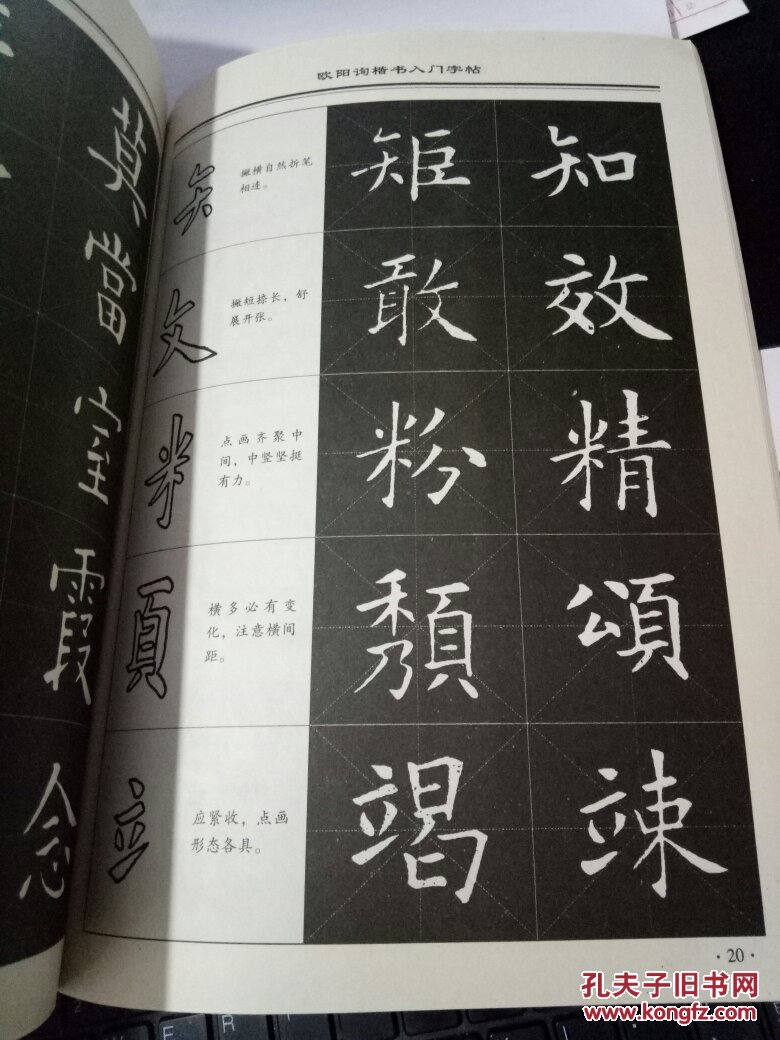 莫
當
室
霞
念
欧阳询楷书入门字帖
矢
撇横自然折笔
相连。
矩 知
攵
撇短捺长，舒
展开张。
敢 效
米
点画齐聚中
间，中竖坚挺
有力。
粉 精
頁
横多必有变
化，注意横间
距。
頹 頌
立
应紧收，点画
形态各具。
竭 竦
·20·
E R
孔夫子旧书网
www.kongfz.com